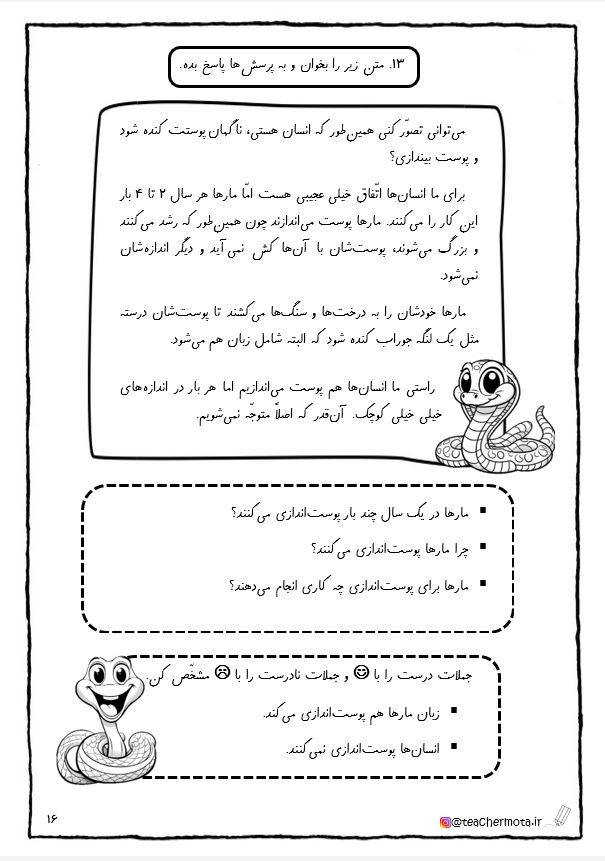 ۱۳. متن زیر را بخوان و به پرسش‌ها پاسخ بده.
می‌توانی تصوّر کنی همین‌طور که انسان هستی، ناگهان پوستت کنده شود
و پوست بیندازی؟
برای ما انسان‌ها اتّفاق خیلی عجیبی هست امّا مارها هر سال ۲ تا ۴ بار
این کار را می‌کنند. مارها پوست می‌اندازند چون همین‌طور که رشد می‌کنند
و بزرگ می‌شوند، پوست‌شان با آن‌ها کش نمی‌آید و دیگر اندازه‌شان
نمی‌شود.
مارها خودشان را به درخت‌ها و سنگ‌ها می‌کشند تا پوست‌شان درسته
مثل یک لنگه جوراب کنده شود که البته شامل زبان هم می‌شود.
راستی ما انسان‌ها هم پوست می‌اندازیم اما هر بار در اندازه‌های
خیلی خیلی کوچک. آن‌قدر که اصلاً متوجّه نمی‌شویم.
▪ مارها در یک سال چند بار پوست‌اندازی می‌کنند؟
▪ چرا مارها پوست‌اندازی می‌کنند؟
▪ مارها برای پوست‌اندازی چه کاری انجام می‌دهند؟
جملات درست را با ☺ و جملات نادرست را با ☹ مشخّص کن.
▪ زبان مارها هم پوست‌اندازی می‌کند.
▪ انسان‌ها پوست‌اندازی نمی‌کنند.
@teachermota.ir
۱۶